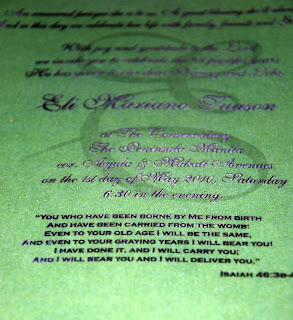 And on this day we celebrate her life with family, friends and
With joy and gratitude to the Lord
we invite you to celebrate the 85 fruitful years
He has given to our dear
at The Conservatory
The Peninsula Manila
cor. Ayala & Makati Avenues
on the 1st day of May 2010, Saturday
6:30 in the evening.
“You who have been borne by Me from birth
And have been carried from the womb:
Even to your old age I will be the same,
And even to your graying years I will bear you!
I have done it, and I will carry you;
And I will bear you and I will deliver you.”
Isaiah 46:3b-4